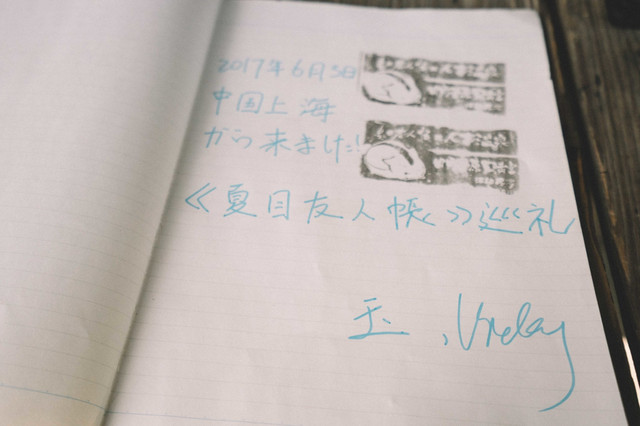 2017年6月5日
中国上海
から来ました!
《夏目友人帳》巡礼
玉,